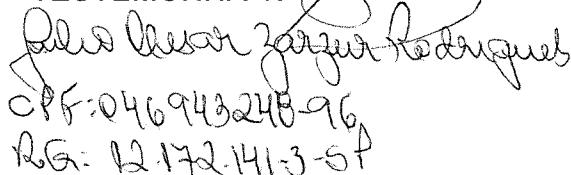 Julio Cesar Zarzur Rodrigues
CPF: 046943248-96
RG: 12.172.141-3-SP